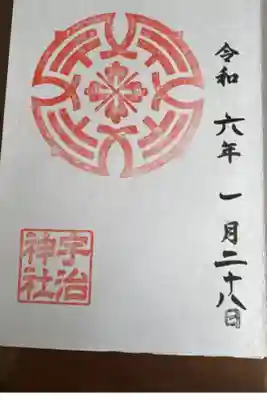 令和 六年 一月二十八日
宇治
神社